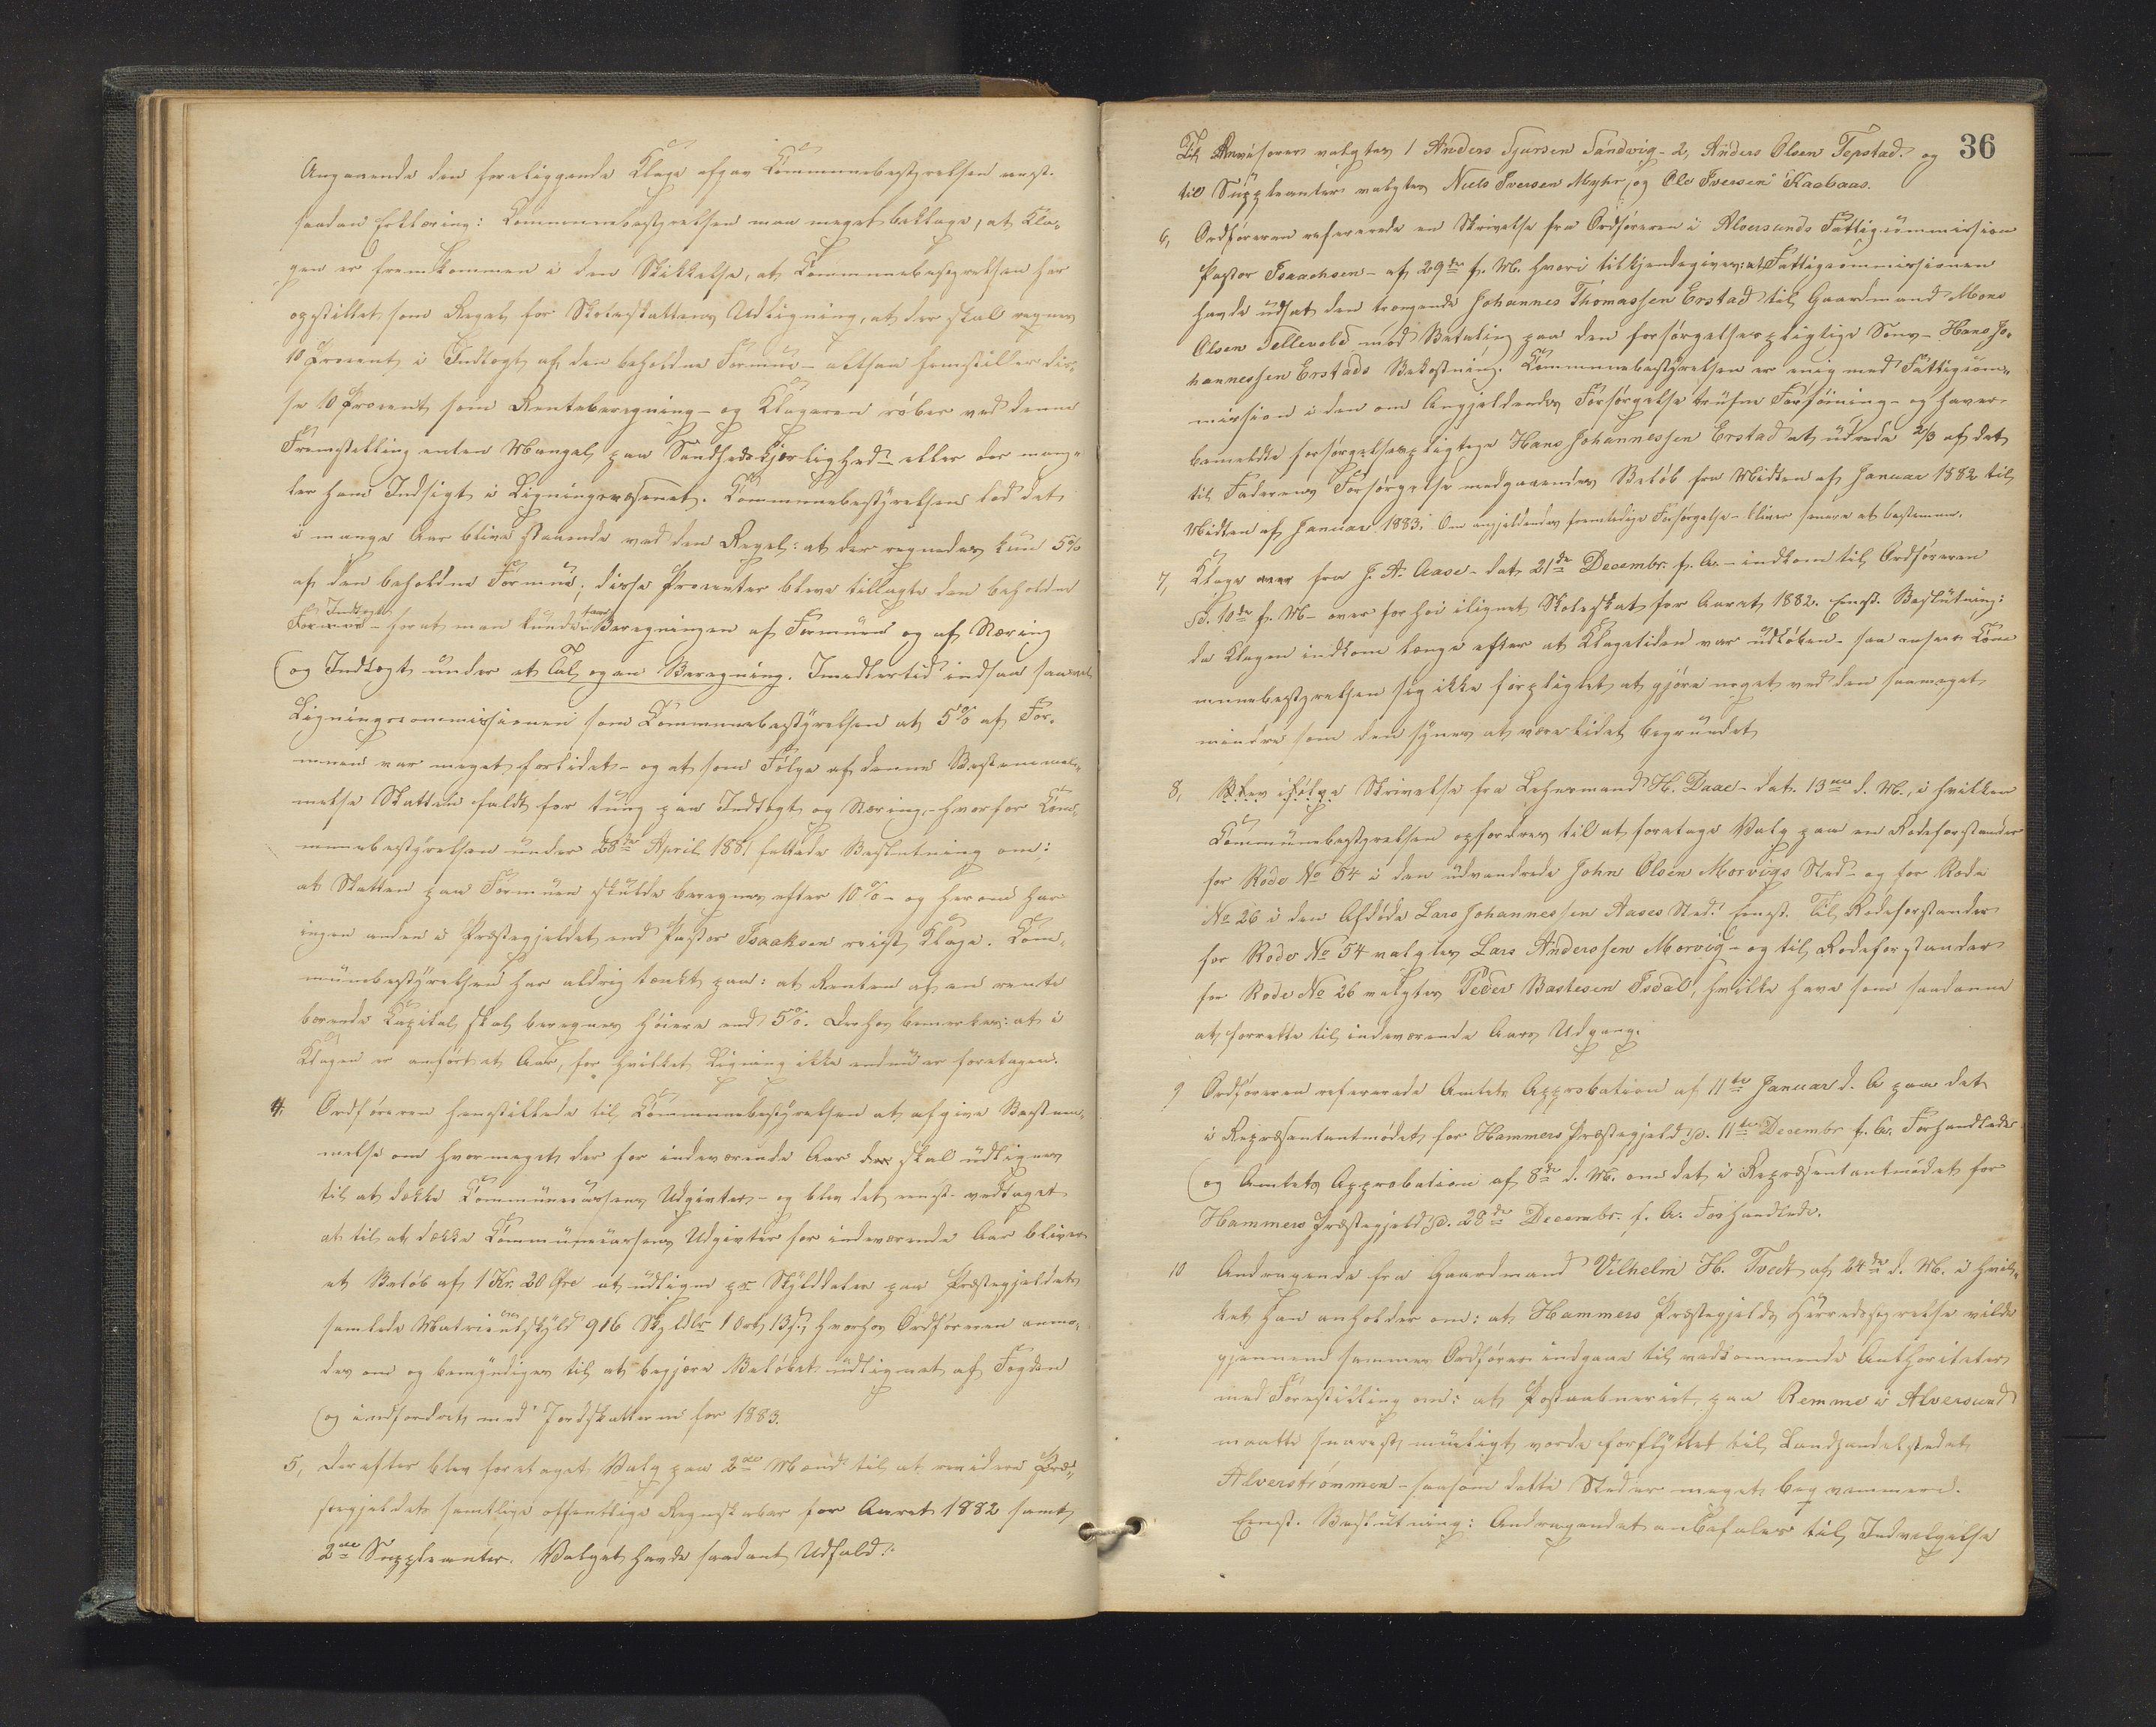 Angaaende den foreliggende Klage afgav Kommunebestyrelsen enst.
saadan Erklæring: Kommunebestyrelsen maa meget beklage, at Kla-
gen er fremkommen i den Skikkelse, at Kommunebestyrelsen har
opstillet som Regel for Skoleskattens Udligning, at der skal regnes
10 Procent i Indtægt af den beholdne Formue – altsaa fremstiller dis-
se 10 Procent som Renteberegning – og Klageren røber ved denne
Fremstilling enten Mangel paa Sandhedskjærlighed – eller der mang-
ler ham Indsigt i Ligningsvæsenet. Kommunebestyrelsen lod det
i mange Aar blive staaende ved den Regel: at der regnedes kun 5%
af den beholdne Formue; disse Procenter bleve tillagte den beholdne
Indtægt
Formue – forat man kunde faae Beregningen af Formuen og af Næring
og Indtægt under et Tal og en Beregning. Imidlertid indsaa saavel
Ligningscommissionen som Kommunebestyrelsen at 5% af For-
muen var meget forlidet – og at som Følge af denne Bestemmel-
melse Skatten faldt for tung paa Indtægt og Næring, – hvorfor Kom-
munebestyrelsen under 28de April 1881 fattede Beslutning om:
at Skatten paa Formuen skulde beregnes efter 10% – og herom har
ingen anden i Præstegjeldet end Pastor Isaaksen reist Klage. Kom-
munebestyrelsen har aldrig tænkt paa: at Renten af en rente
bærende Kapital skal beregnes høiere end 5%. Derhos bemærkes: at i
Klagen er anført et Aar, for hvilket Ligning ikke endnu er foretagen.
4, Ordføreren henstillede til Kommunebestyrelsen at afgive Bestem-
melse om hvormeget der for indeværende Aar der skal udlignes
til at dække Kommunecassens Udgivter – og blev det enst. vedtaget
at til at dække Kommunecassens Udgivter for indeværende Aar bliver
et Beløb af 1 Kr. 20 Øre at udligne pr Skylddaler paa Præstegjeldets
samlede Matriculskyld 916 Skyldlr 1 Ort 13 ß, hvorhos Ordføreren anmo-
des om og bemyndiges til at begjære Beløbet udlignet af Fogden
og indfordret med Jordskatterne for 1883.
5, Derefter blev foretaget Valg paa 2de Mænd til at revidere Præ-
stegjeldets samtlige offentlige Regnskaber for Aaret 1882 samt
2de Suppleanter. Valget havde saadant Udfald:
36
Til Revisorer valgtes 1 Anders Sjursen Sandvig – 2, Anders Olsen Tepstad. og
til Suppleanter valgtes Niels Iversen Myhr, og Ole Iversen Kaabaas.
6, Ordføreren refererede en Skrivelse fra Ordføreren i Alversunds Fattigcommission
Pastor Isaachsen – af 29de f. M. hvori tilkjendegives: at Fattigcommissionen
havde udsat den trængende Johannes Thomassen Erstad til Gaardmand Mons
Olsen Tellevold mod Betaling paa den forsørgelsespligtige Søns – Hans Jo-
hannessen Erstads Bekostning. Kommunebestyrelsen er enig med Fattigcom-
mission i den om Angjeldendes Forsørgelse trufne Forføining – og haver
bemeldte forsørgelsespligtige Hans Johannessen Erstad at udrede 2/3 af det
til Faderens Forsørgelse medgaaendes Beløb fra Midten af Januar 1882 til
Midten af Januar 1883. Om angjeldendes fremtidige Forsørgelse – bliver senere at bestemme.
7, Klage over fra J. A. Aase – dat. 21de Decembr. f. A. – indkom til Ordføreren
d. 10de f. M – over for høi ilignet Skoleskat for Aaret 1882. Enst. Beslutning:
da Klagen indkom længe efter at Klagetiden var udløben – saa anser Kom
munebestyrelsen sig ikke forpligtet at gjøre noget ved den saameget
mindre som den synes at være lidet begrundet
8, Blev ifølge Skrivelse fra Lehnsmand H. Daae – dat. 13de d. M., i hvilken
Kommunebestyrelsen opfordres til at foretage Valg paa en Rodeforstander
for Rode No 54 i den udvandrede John Olsen Morvigs Sted – og for Rode
No 26 i den Afdøde Lars Johannessen Aases Sted: Enst. Til Rodeforstander
for Rode No 54 valgtes Lars Anderssen Morvig – og til Rodeforstander
for Rode No 26 valgtes Peder Bastesen Isdal, hvilke have som saadanne
at forrette til indeværende Aars Udgang.
9 Ordføreren refererede Amtets Approbation af 11te Januar d. A paa det
i Repræsentantmødet for Hammers Præstegjeld d. 11te Decembr f. A. Forhandlede
og Amtets Approbation af 8de d. M. om det i Repræsentantmødet for
Hammers Præstegjeld d. 28de Decembr. f. A. Forhandlede.
10 Andragende fra Gaardmand Vilhelm H. Tvedt af 24de d. M. i hvil-
ket han anholder om: at Hammers Præstegjelds Herredsstyrelse vilde
gjennem sammes Ordfører indgaae til vedkommende Authoriteter
med Forestilling om: at Postaabneriet paa Remme i Alversund
maatte snarest mueligt vorde forflyttet til Landhandelstedet
Alverstrømmen – saasom dette Sted er meget beqvemmere.
Enst. Beslutning: Andragendet anbefales til Indvilgelse